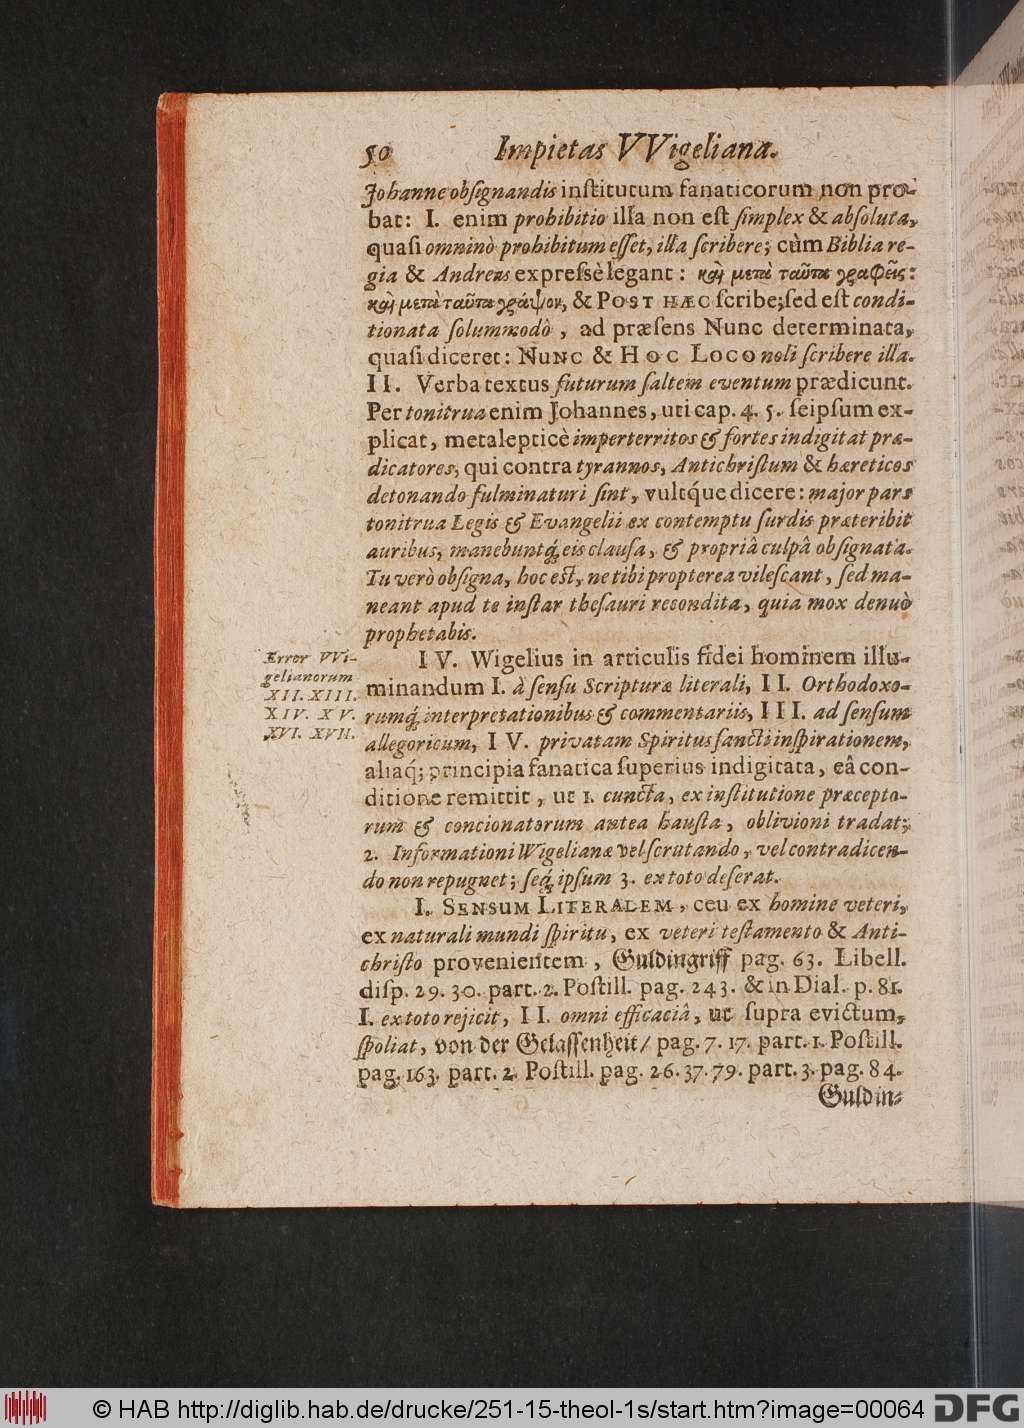 50 Impietas VVigeliana.
Johanne obſignandis inſtitutum fanaticorum non pro-
bat: I. enim prohibitio illa non eſt ſimplex & abſoluta,
quaſi omninò prohibitum eſſet, illa ſcribere; cùm Biblia re-
gia & Andreæ expreſsè legant: καὶ μετὰ ταῦτα γραφεῖς:
καὶ μετὰ ταῦτα γράψον, & POST HÆC ſcribe; ſed eſt condi-
tionata ſolummodò, ad præſens Nunc determinata,
quaſi diceret: NUNC & HOC LOCO noli ſcribere illa.
II. Verba textus futurum ſaltem eventum prædicunt.
Per tonitrua enim Johannes, uti cap. 4. 5. ſeipſum ex-
plicat, metalepticè imperterritos & fortes indigitat præ-
dicatores, qui contra tyrannos, Antichriſtum & hæreticos
detonando fulminaturi ſint, vultq́ue dicere: major pars
tonitrua Legis & Evangelii ex contemptu ſurdis præteribit
auribus, manebuntq́; eis clauſa, & propriâ culpâ obſignata.
Tu verò obſigna, hoc eſt, ne tibi propterea vileſcant, ſed ma-
neant apud te inſtar theſauri recondita, quia mox denuò
prophetabis.
Error VVi-
gelianorum
XII. XIII.
XIV. XV.
XVI. XVII.
IV. Wigelius in articulis fidei hominem illu-
minandum I. à ſenſu Scripturæ literali, II. Orthodoxo-
rumq́; interpretationibus & commentariis, III. ad ſenſum
allegoricum, IV. privatam Spiritus ſancti inſpirationem,
aliaq́; principia fanatica ſuperius indigitata, eâ con-
ditione remittit, ut 1. cuncta, ex inſtitutione præcepto-
rum & concionatorum antea hauſta, oblivioni tradat;
2. Informationi Wigelianæ vel ſcrutando, vel contradicen-
do non repugnet; ſeq́; ipſum 3. ex toto deſerat.
I. SENSUM LITERALEM, ceu ex homine veteri,
ex naturali mundi ſpiritu, ex veteri teſtamento & Anti-
chriſto provenientem, Guldingriff pag. 63. Libell.
diſp. 29. 30. part. 2. Poſtill. pag. 243. & in Dial. p. 81.
I. ex toto rejicit, II. omni efficaciâ, ut ſupra evictum,
ſpoliat, von der Gelaſſenheit/ pag. 7. 17. part. 1. Poſtill.
pag. 163. part. 2. Poſtill. pag. 26. 37. 79. part. 3. pag. 84.
Guldin-
© HAB http://diglib.hab.de/drucke/251-15-theol-1s/start.htm?image=00064
DFG